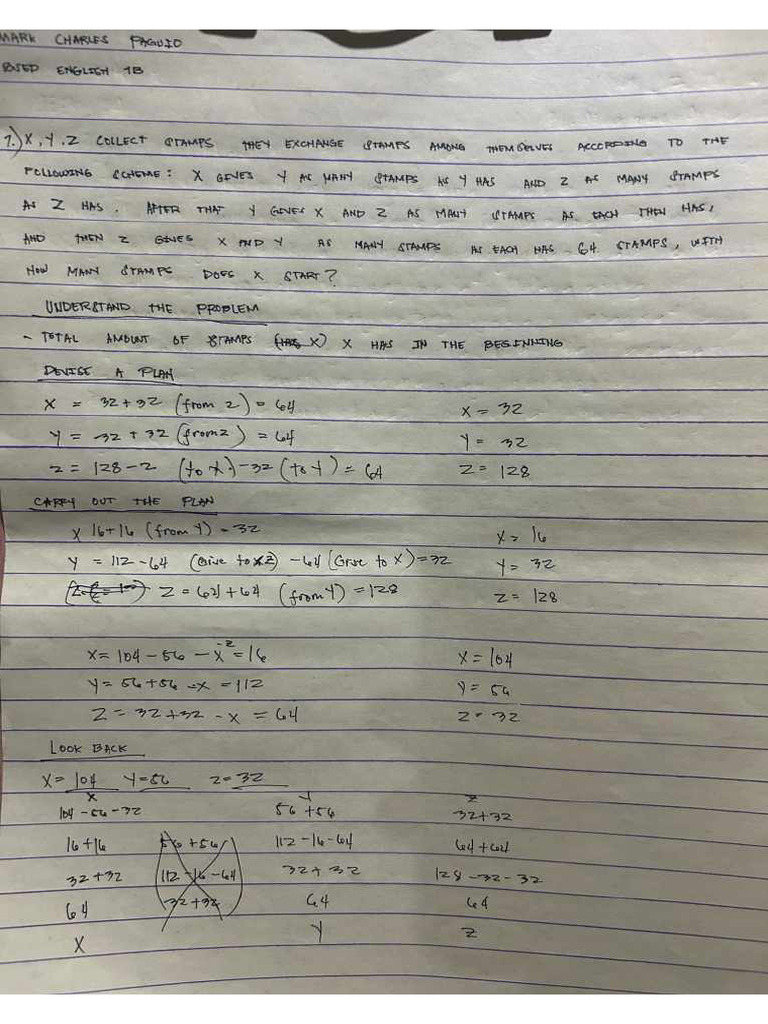 MARK CHARLES PAGUIO
BSED ENGLISH 1B
1.) X, Y, Z COLLECT STAMPS THEY EXCHANGE STAMPS AMONG THEMSELVES ACCORDING TO THE
FOLLOWING SCHEME: X GIVES Y AS MANY STAMPS AS Y HAS AND Z AS MANY STAMPS
AS Z HAS. AFTER THAT Y GIVES X AND Z AS MANY STAMPS AS EACH THEN HAS,
AND THEN Z GIVES X AND Y AS MANY STAMPS AS EACH HAS 64 STAMPS, WITH
HOW MANY STAMPS DOES X START?
UNDERSTAND THE PROBLEM
- TOTAL AMOUNT OF STAMPS (HAS X) X HAS IN THE BEGINNING
DEVISE A PLAN
X = 32+32 (from z) = 64 X = 32
Y = 32 + 32 (from z) = 64 Y = 32
Z = 128 - 2 (to X) - 32 (to Y) = 64 Z = 128
CARRY OUT THE PLAN
X 16+16 (from Y) = 32 X = 16
Y = 112 - 64 (Give to Z) - 64 (Give to X) = 32 Y = 32
Z = 64 + 64 (from Y) = 128 Z = 128
X = 104 - 56 - X -Z = 16 X = 104
Y = 56 + 56 - X = 112 Y = 56
Z = 32 + 32 - X = 64 Z = 32
LOOK BACK
X = 104 Y = 56 Z = 32
X Y Z
104 - 56 - 32 56 + 56 32 + 32
16 + 16 56 + 56 112 - 16 - 64 64 + 64
32 + 32 112 - 16 - 64 32 + 32 128 - 32 - 32
64 32 + 32 64 64
X Y Z